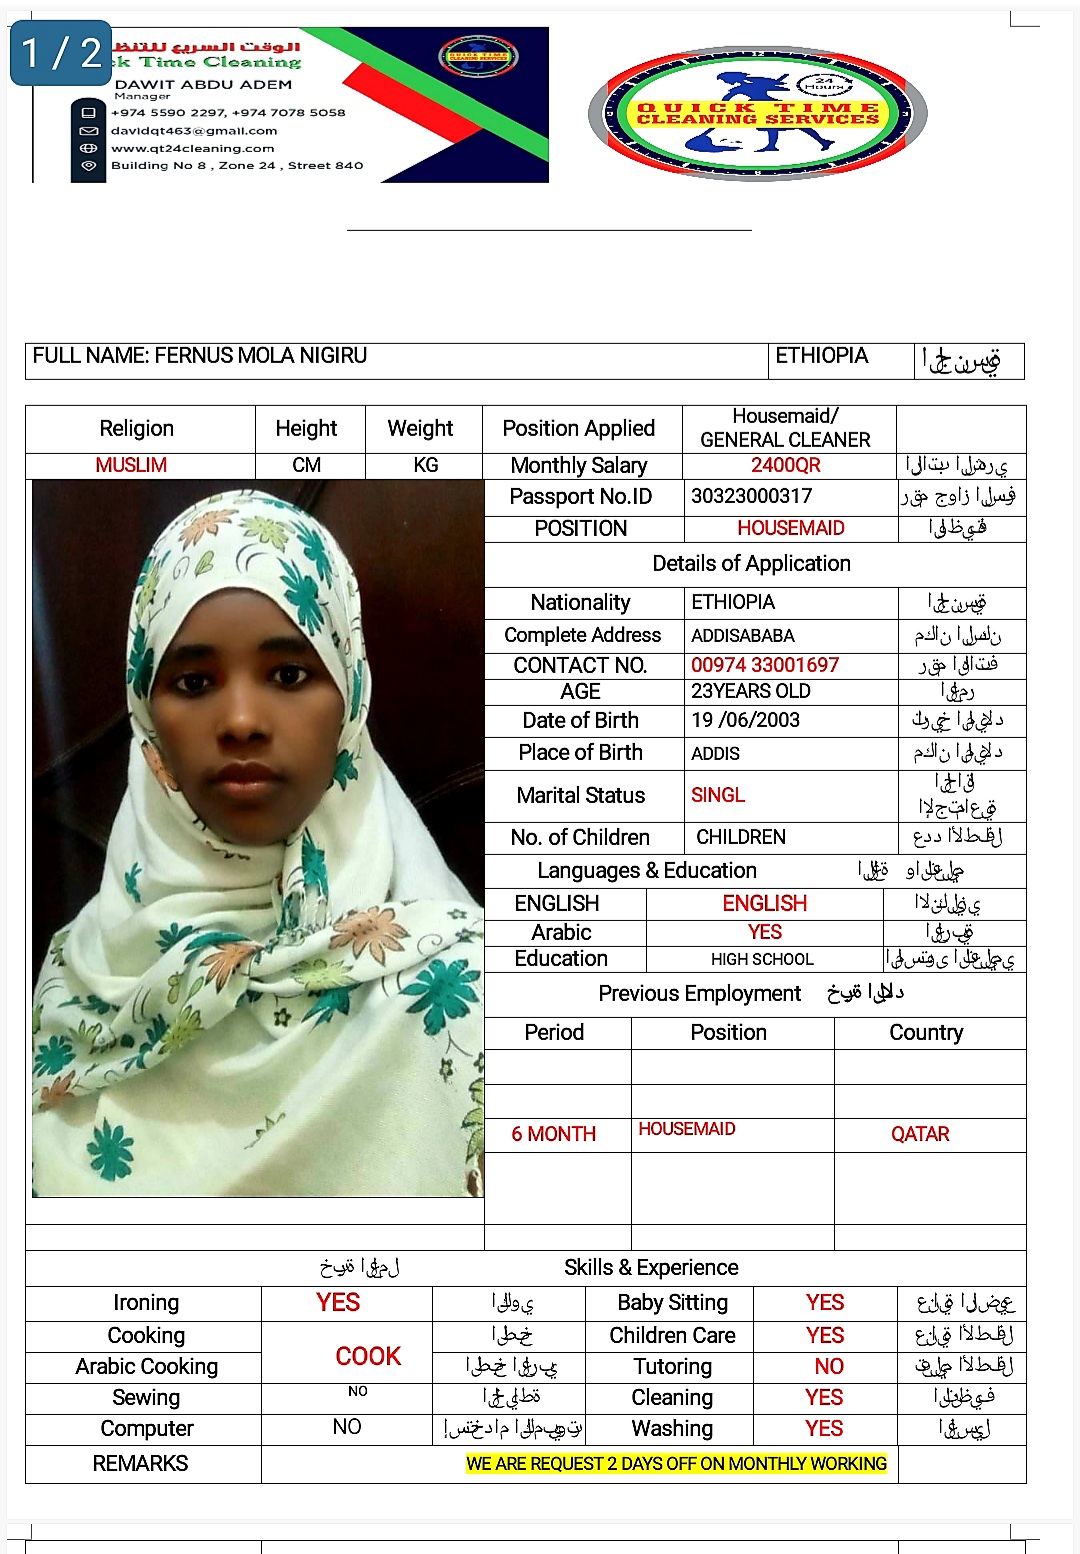 1 / 2
الوقت السريع للتنظ
ck Time Cleaning
DAWIT ABDU ADEM
Manager
+974 5590 2297, +974 7078 5058
davidqt463@gmail.com
www.qt24cleaning.com
Building No 8 , Zone 24 , Street 840
24
Hours
QUICK TIME
CLEANING SERVICES
FULL NAME: FERNUS MOLA NIGIRU ETHIOPIA الجنسية
Religion Height Weight Position Applied Housemaid/
GENERAL CLEANER
MUSLIM CM KG Monthly Salary 2400QR الراتب الشهري
Passport No.ID 30323000317 رقم جواز السفر
POSITION HOUSEMAID الوظيفة
Details of Application
Nationality ETHIOPIA الجنسية
Complete Address ADDISABABA مكان السكن
CONTACT NO. 00974 33001697 رقم الهاتف
AGE 23YEARS OLD العمر
Date of Birth 19 /06/2003 تاريخ الميلاد
Place of Birth ADDIS مكان الميلاد
Marital Status SINGL الحالة
الإجتماعية
No. of Children CHILDREN عدد الأطفال
Languages & Education اللغة والتعليم
ENGLISH ENGLISH الانجليزي
Arabic YES العربية
Education HIGH SCHOOL المستوى التعليمي
Previous Employment
Period Position Country
6 MONTH HOUSEMAID QATAR
خبرة العمل Skills & Experience
Ironing YES الكوي Baby Sitting YES عناية الرضع
Cooking COOK الطبخ Children Care YES عناية الأطفال
Arabic Cooking الطبخ العربي Tutoring NO تعليم الأطفال
Sewing NO الخياطة Cleaning YES التنظيف
Computer NO إستخدام الكمبيوتر Washing YES الغسيل
REMARKS WE ARE REQUEST 2 DAYS OFF ON MONTHLY WORKING